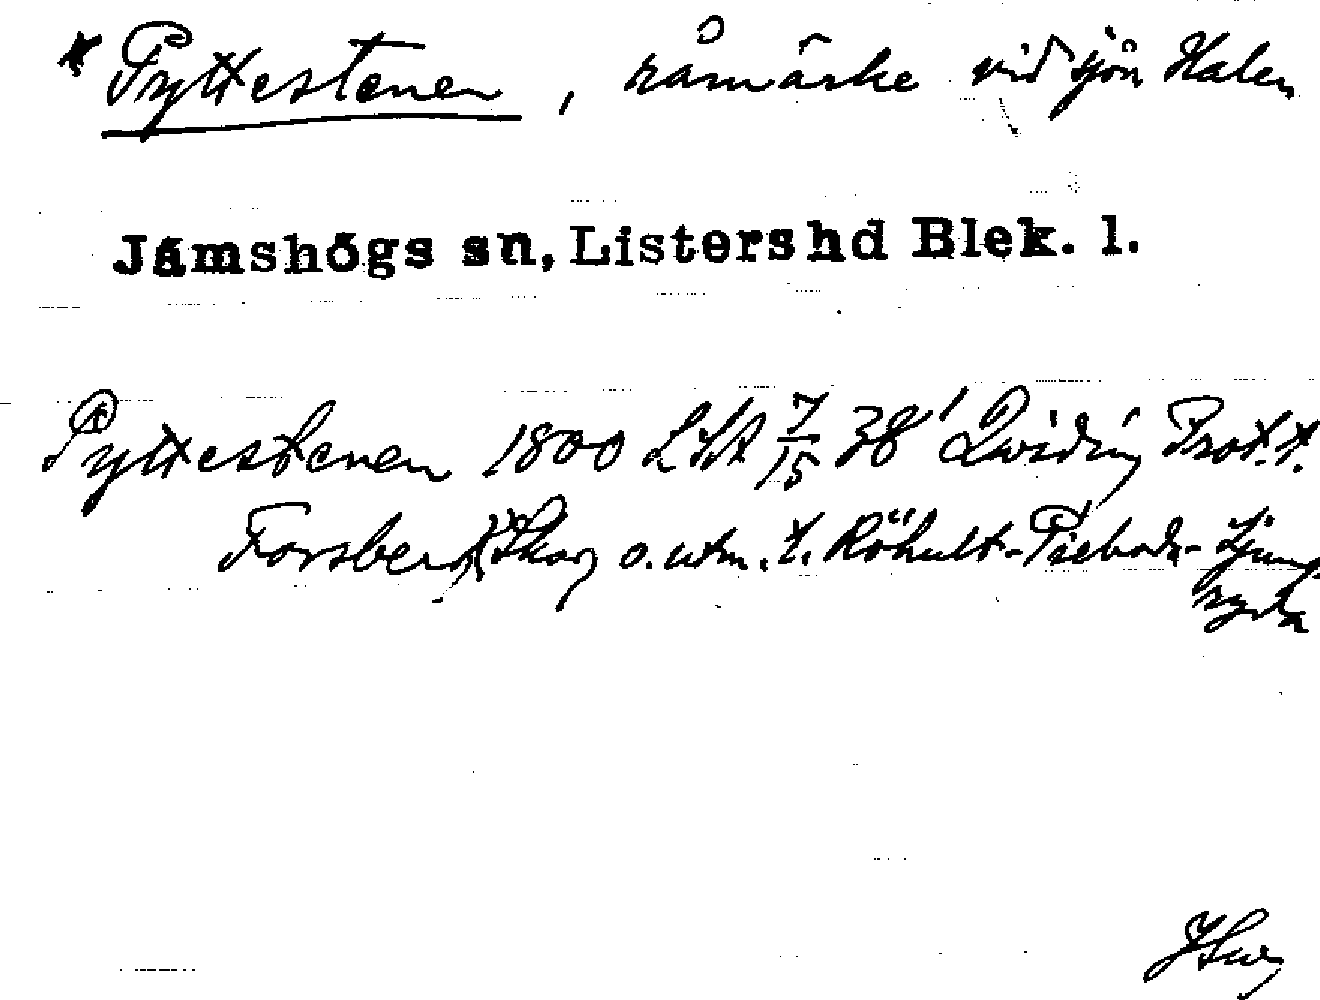 * Pyttestenen, råmärke vid sjön Halen
Jämshögs sn, Listers hd Blek. l.
Pyttestenen 1800 LSA 7/15 38' Qviding Prot. t.
Forsberg, Skog o. utm. t. Röhult-Pieboda-Ljung
ryda